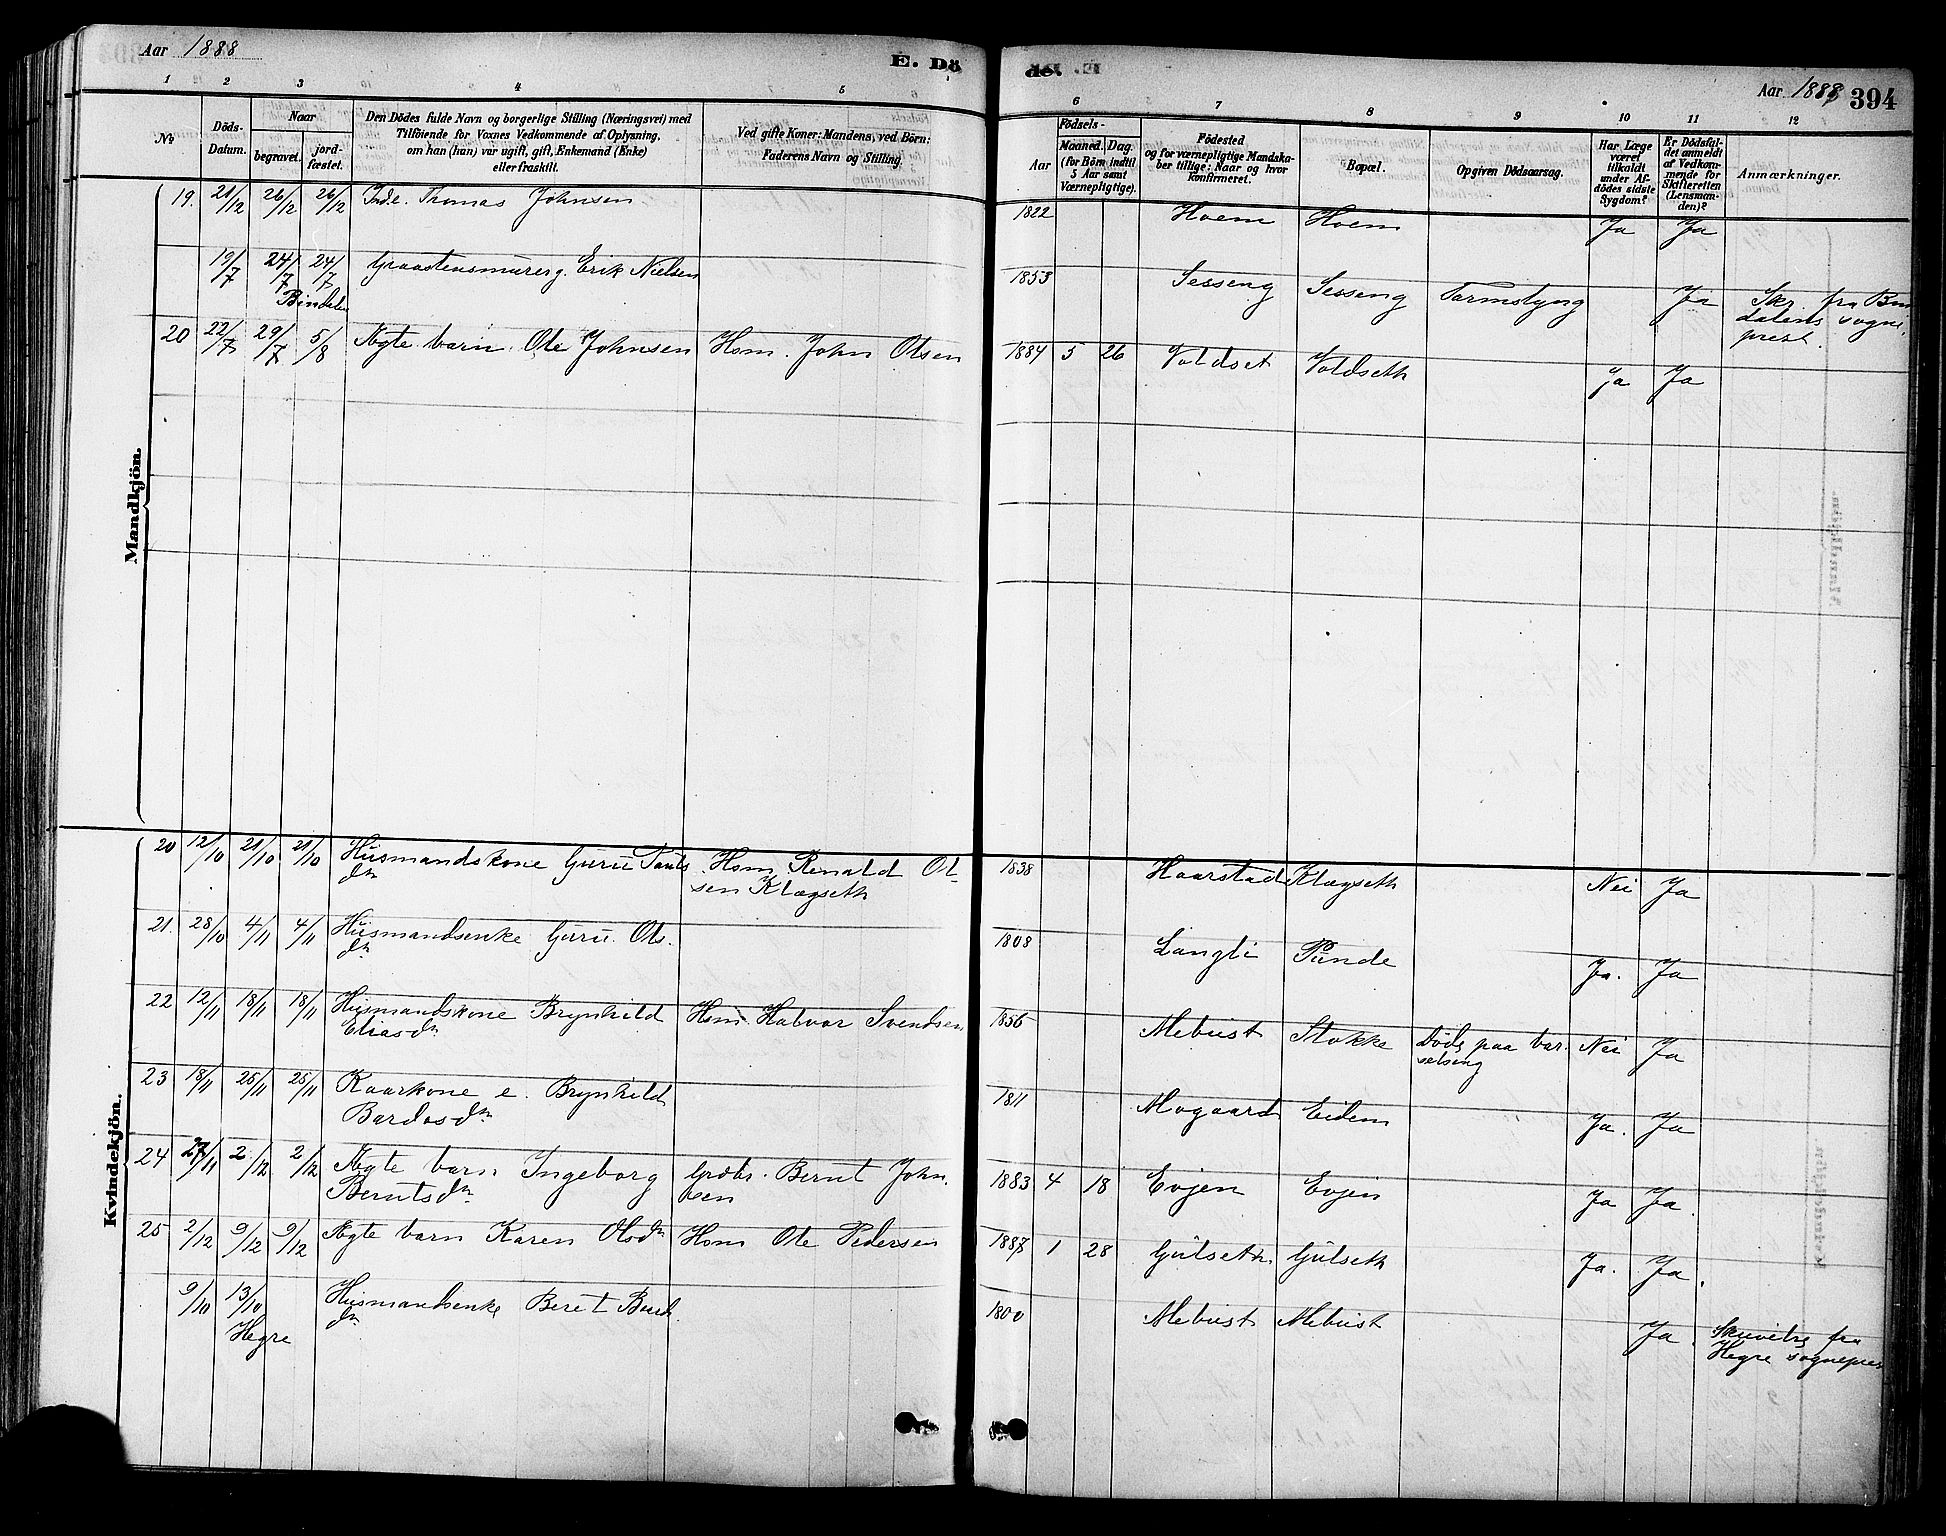 Aar 1888
E. Dö
de.
Aar 1888
394
1 2 3 4 5 6 7 8 9 10 11 12
No
Döds-Datum.
Naar
begravet.
jord-fæstet.
Den Dödes fulde Navn og borgerlige Stilling (Næringsvei) med
Tilföiende for Voxnes Vedkommende af Oplysning,
om han (hun) var ugift, gift, Enkemand (Enke)
eller fraskilt.
Ved gifte Koner: Mandens, ved Börn:
Faderens Navn og Stilling.
Födsels-
Aar
Maaned. Dag.
(for Börn indtil
5 Aar samt
Værnepligtige).
Födested
og for værnepligtige Mandska-
ber tillige: Naar og hvor
konfirmeret.
Bopæl.
Opgiven Dödsaarsag.
Har Læge
været
tilkaldt
under Af-
dödes sidste
Sygdom?
Er Dödsfal-
det anmeldt
af Vedkom-
mende for
Skifteretten
(Lensman-
den)?
Anmærkninger.
Mandkjön.
19. 21/12 26/12 26/12 Inde. Thomas Johnsen 1822 Hoem Hoem Ja Ja
19/7 24/7 24/7 Graastensmurerg. Erik Nielsen 1853 Sesseng Sesseng Tarmslyng Ja Skr. fra Bin
Bindalen dalens sogne
prest.
20 22/7 29/7 5/8 Ægte barn Ole Johnsen Hsm. John Olsen 1884 5 26 Voldset Voldseth Ja Ja
Kvindekjön.
20 12/10 21/10 21/10 Husmandskone Guru Pauls Hsm. Renald Ol- 1838 Haarstad Klægseth Nei Ja
dr. sen Klægseth
21. 28/10 4/11 4/11 Husmandsenke Guru Ols. 1808 Langli Ja. Ja
dr.
22 12/11 18/11 18/11 Husmandskone Brynhild Hsm. Halvor Svendsen 1856 Mebust Stokke Döde paa bar- Nei Ja
Eliasdr. selseng
23 18/11 25/11 25/11 Kaarkone e. Brynhild 1811 Mogaard Eidem Ja. Ja
Bardosdr.
24 27/11 2/12 2/12 Ægte barn Ingeborg Grdbr. Bernt John 1883 4 18 Evjen Evjen Ja Ja.
Berntsdr. sen
25 2/12 9/12 9/12 Ægte barn Karen Olsdr Hsm Ole Pedersen 1887 1 28 Gulseth Gulseth Ja. Ja.
9/10 13/10 Husmandsenke Beret Bard. 1800 Mebust Mebust Ja. fra
Hegre dr. Hegre sognepres